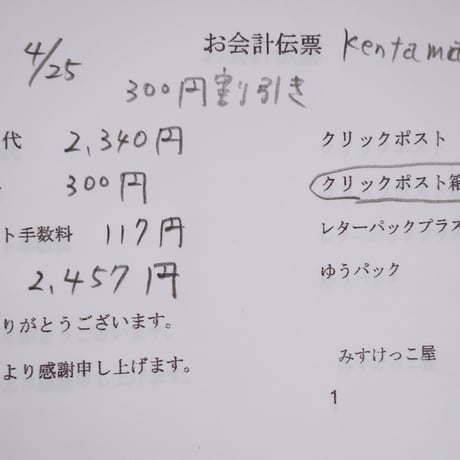 4/25
お会計伝票 Kentama
300円割り引き
代 2,340円
クリックポスト
300円
クリックポスト箱
ト手数料 117円
レタ��パックプラス
2,457円
ゆうパック
りがとうございます。
より感謝申し上げます。
みすけっこ屋
1